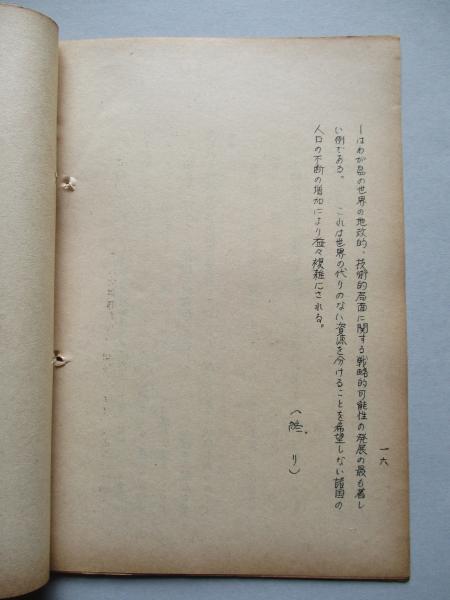 一六
ーはわが島の世界の地政的、技術的局面に関する戦略的可能性の発展の最も著し
い例である。 これは世界の代りのない資源を分けることを希望しない諸国の
人口の不断の増加により益々複雑にされる。
(終り)